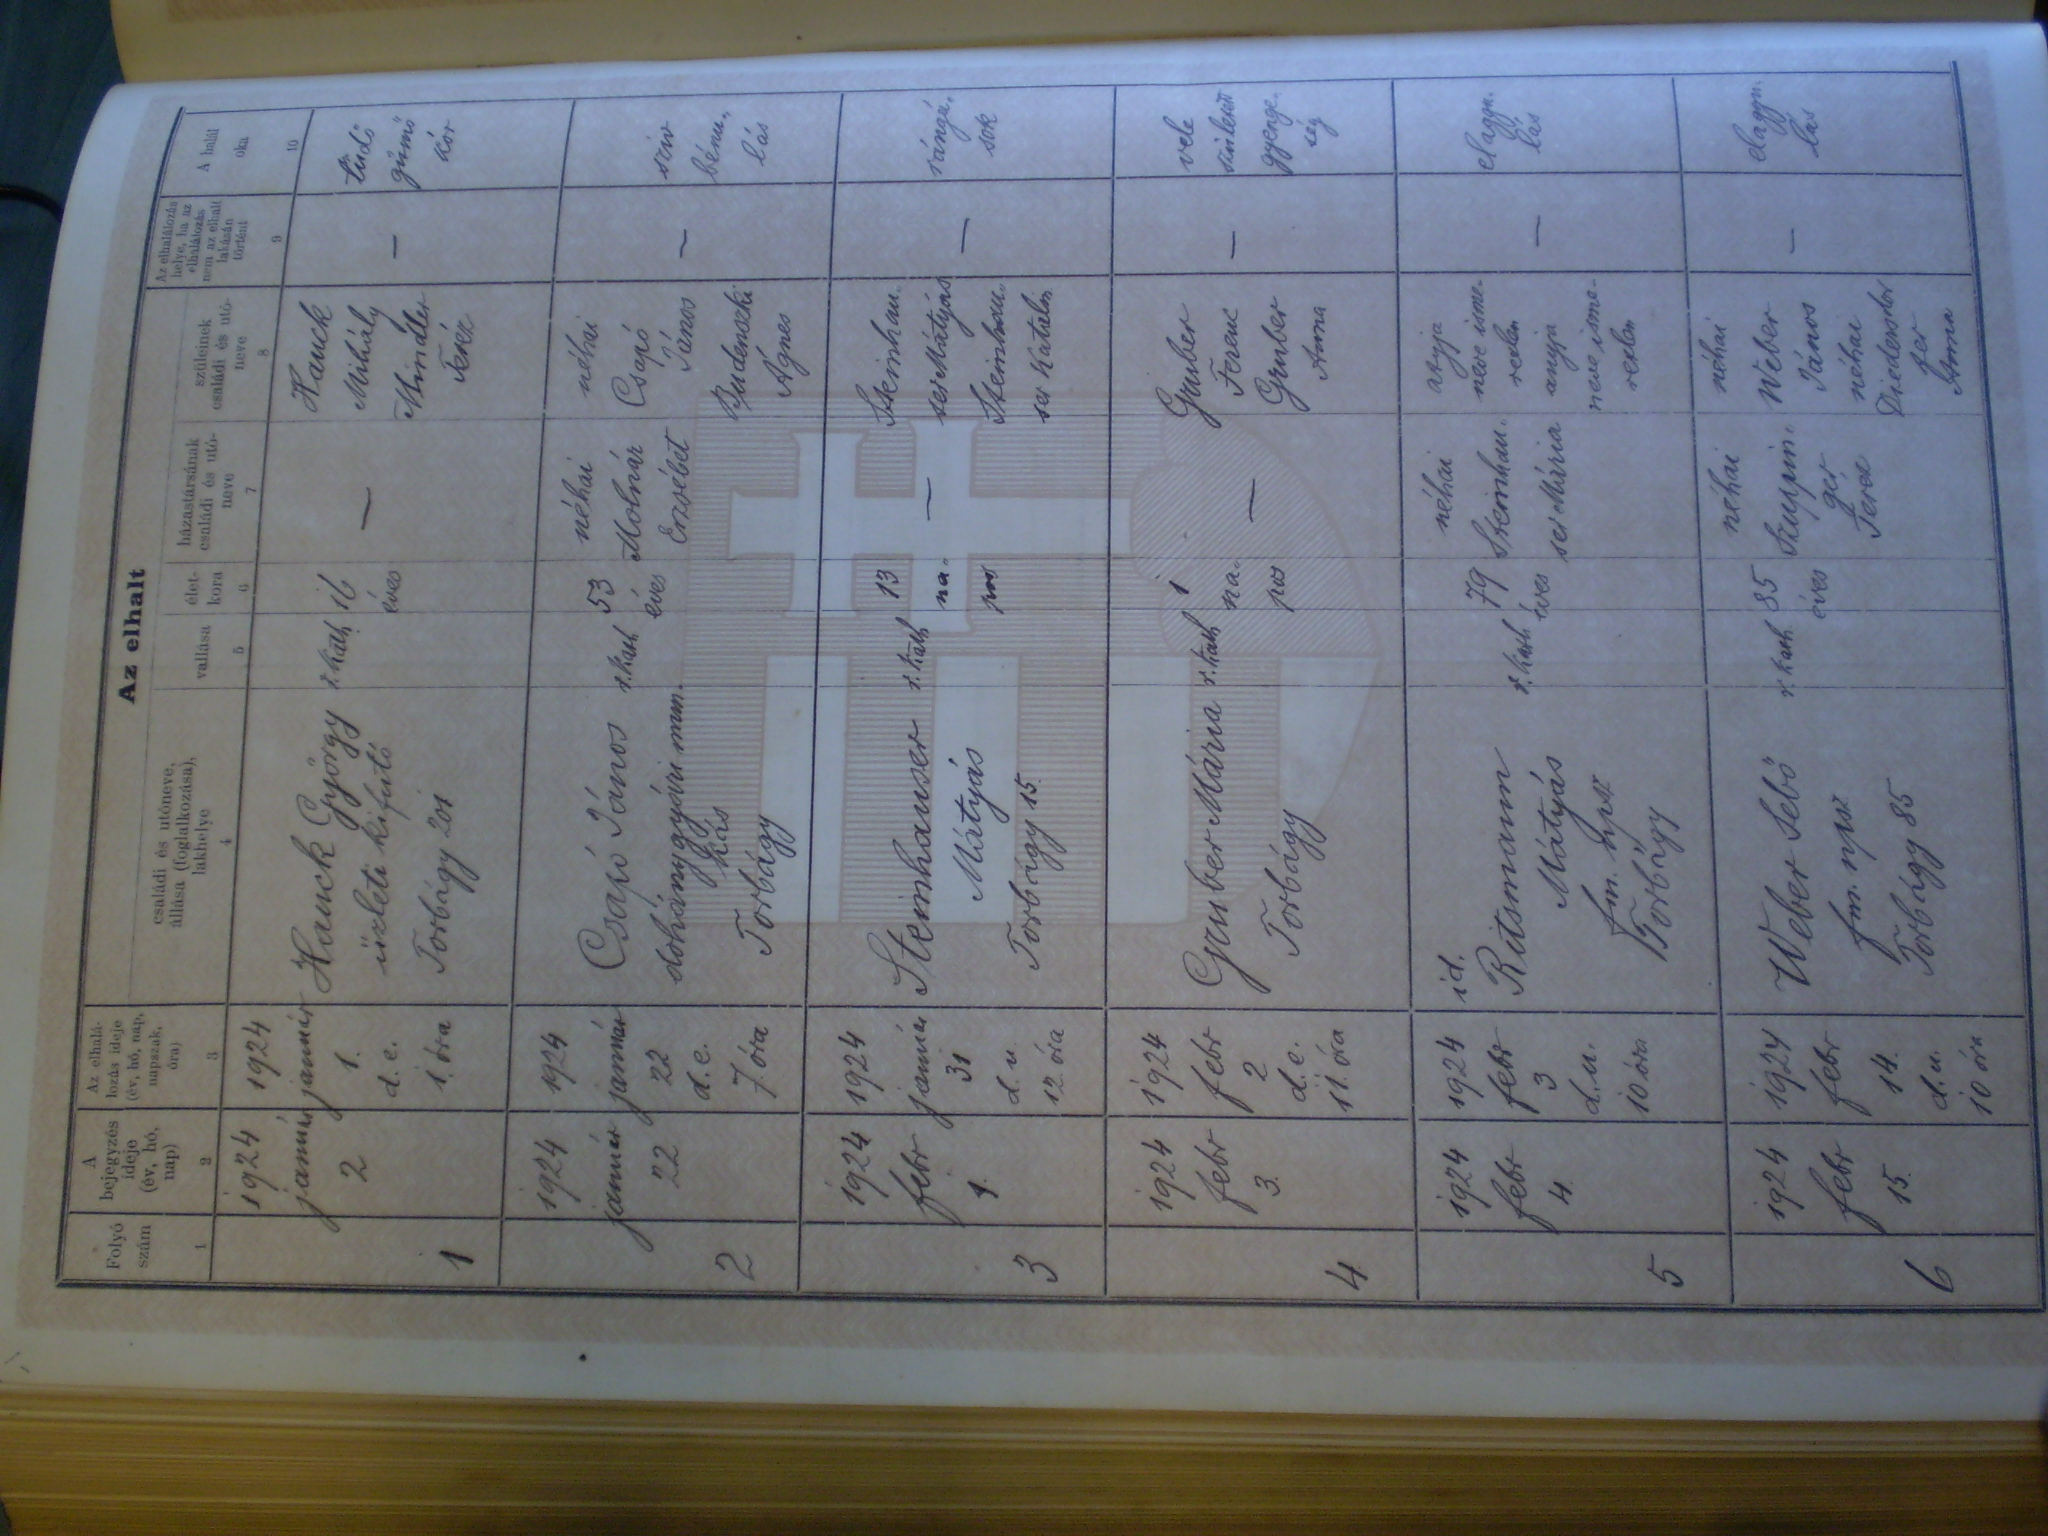 Az elhalt
Folyó
szám
A
bejegyzés
ideje
(év, hó,
nap)
Az elhalá-
lozás ideje
(év, hó, nap,
napszak,
óra)
családi és utóneve,
állása (foglalkozása),
lakhelye
vallása
élet-
kora
házastársának
családi és utó-
neve
szüleinek
családi és utó-
neve
Az elhalálozás
helye, ha az
elhalálozás
nem az elhalt
lakásán
történt
A halál
oka
1
2
3
4
5
6
7
8
9
10
1
1924
január
2
1924
január
1.
d. e.
1. óra
Hauck György
üzleti kifutó
Torbágy 201
r. kath
16
éves
—
Hauck
Mihály
Mindler
Teréz
—
tüdő
gümő
kór
2
1924
január
22
1924
január
22
d. e.
7 óra
Csapó János
dohánygyári mun.
kás
Torbágy
r. kath
53
éves
néhai
Molnár
Erzsébet
néhai
Csapó
János
Budenszki
Ágnes
—
szív
bénu„
lás
3
1924
febr
1.
1924
január
31
d. u.
12. óra
Steinhauser
Mátyás
Torbágy 15.
r. kath
13
na„
pos
—
Steinhau„
ser Mátyás
Steinhau„
ser Katalin
—
rángá„
sok
4.
1924
febr
3.
1924
febr
2
d. e.
11. óra
Gruber Mária
Torbágy
r. kath
1
na„
pos
—
Gruber
Ferenc
Gruber
Anna
—
vele
született
gyenge„
ség
5
1924
febr
4.
1924
febr
3
d. u.
10 óra
id.
Ritsmann
Mátyás
fm. npsz
Torbágy
r. kath
79
éves
néhai
Steinhau„
ser Mária
atyja
neve isme-
retlen
anyja
neve isme-
retlen
—
elaggu„
lás
6
1924
febr
15.
1924
febr
14.
d. u.
10 óra
Weber Sebő
fm. npsz
Torbágy 85
r. kath
85
éves
néhai
ger
Teréz
néhai
Weber
János
néhai
fer
Anna
—
elaggu„
lás